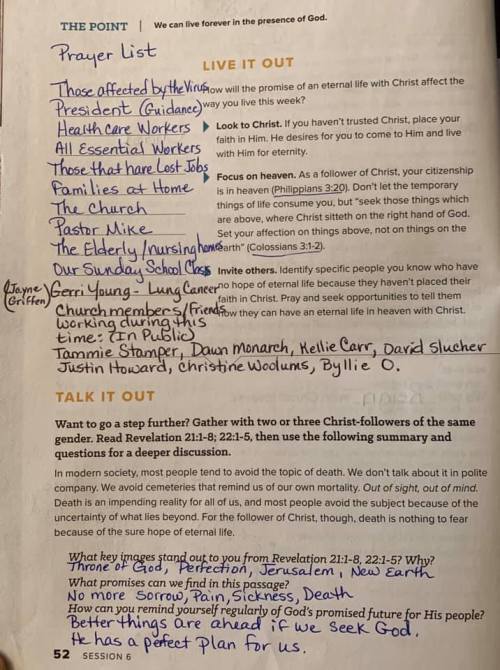 THE POINT | We can live forever in the presence of God.
Prayer List
LIVE IT OUT
Those affected by the Virus
How will the promise of an eternal life with Christ affect the
President (Guidance)
way you live this week?
Health care Workers
Look to Christ. If you haven't trusted Christ, place your
All Essential Workers
faith in Him. He desires for you to come to Him and live
with Him for eternity.
Those that have Lost Jobs
Focus on heaven. As a follower of Christ, your citizenship
Families at Home
is in heaven (Philippians 3:20). Don't let the temporary
The Church
things of life consume you, but "seek those things which
are above, where Christ sitteth on the right hand of God.
Pastor Mike
Set your affection on things above, not on things on the
The Elderly/nursing homes
earth" (Colossians 3:1-2).
Our Sunday School Class
Invite others. Identify specific people you know who have
(Jayne Griffen) Gerri Young - Lung Cancer
no hope of eternal life because they haven't placed their
faith in Christ. Pray and seek opportunities to tell them
Church members/Friends
how they can have an eternal life in heaven with Christ.
working during this
time: (In Public)
Tammie Stamper, Dawn Monarch, Kellie Carr, David Slucher
Justin Howard, Christine Woolums, Byllie O.
TALK IT OUT
Want to go a step further? Gather with two or three Christ-followers of the same
gender. Read Revelation 21:1-8; 22:1-5, then use the following summary and
questions for a deeper discussion.
In modern society, most people tend to avoid the topic of death. We don't talk about it in polite
company. We avoid cemeteries that remind us of our own mortality. Out of sight, out of mind.
Death is an impending reality for all of us, and most people avoid the subject because of the
uncertainty of what lies beyond. For the follower of Christ, though, death is nothing to fear
because of the sure hope of eternal life.
What key images stand out to you from Revelation 21:1-8, 22:1-5? Why?
Throne of God, Perfection, Jerusalem, New Earth
What promises can we find in this passage?
No more sorrow, Pain, Sickness, Death
How can you remind yourself regularly of God's promised future for His people?
Better things are ahead if we seek God.
He has a perfect plan for us.
52 SESSION 6